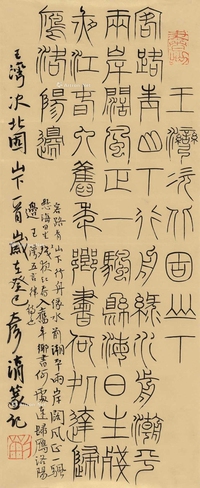 王灣次北固山下
客路青山下行舟綠水前潮平
兩岸闊風正一帆懸海日生殘
夜江春入舊年鄉書何処達歸
雁洛陽邊
客路青
山下行舟綠水前潮平兩岸闊風正一帆
懸海日生殘夜江春入舊年鄉書何處達歸雁洛陽
邊 王灣五言律
王灣次北固山下一首歲在癸巳彥濤篆記